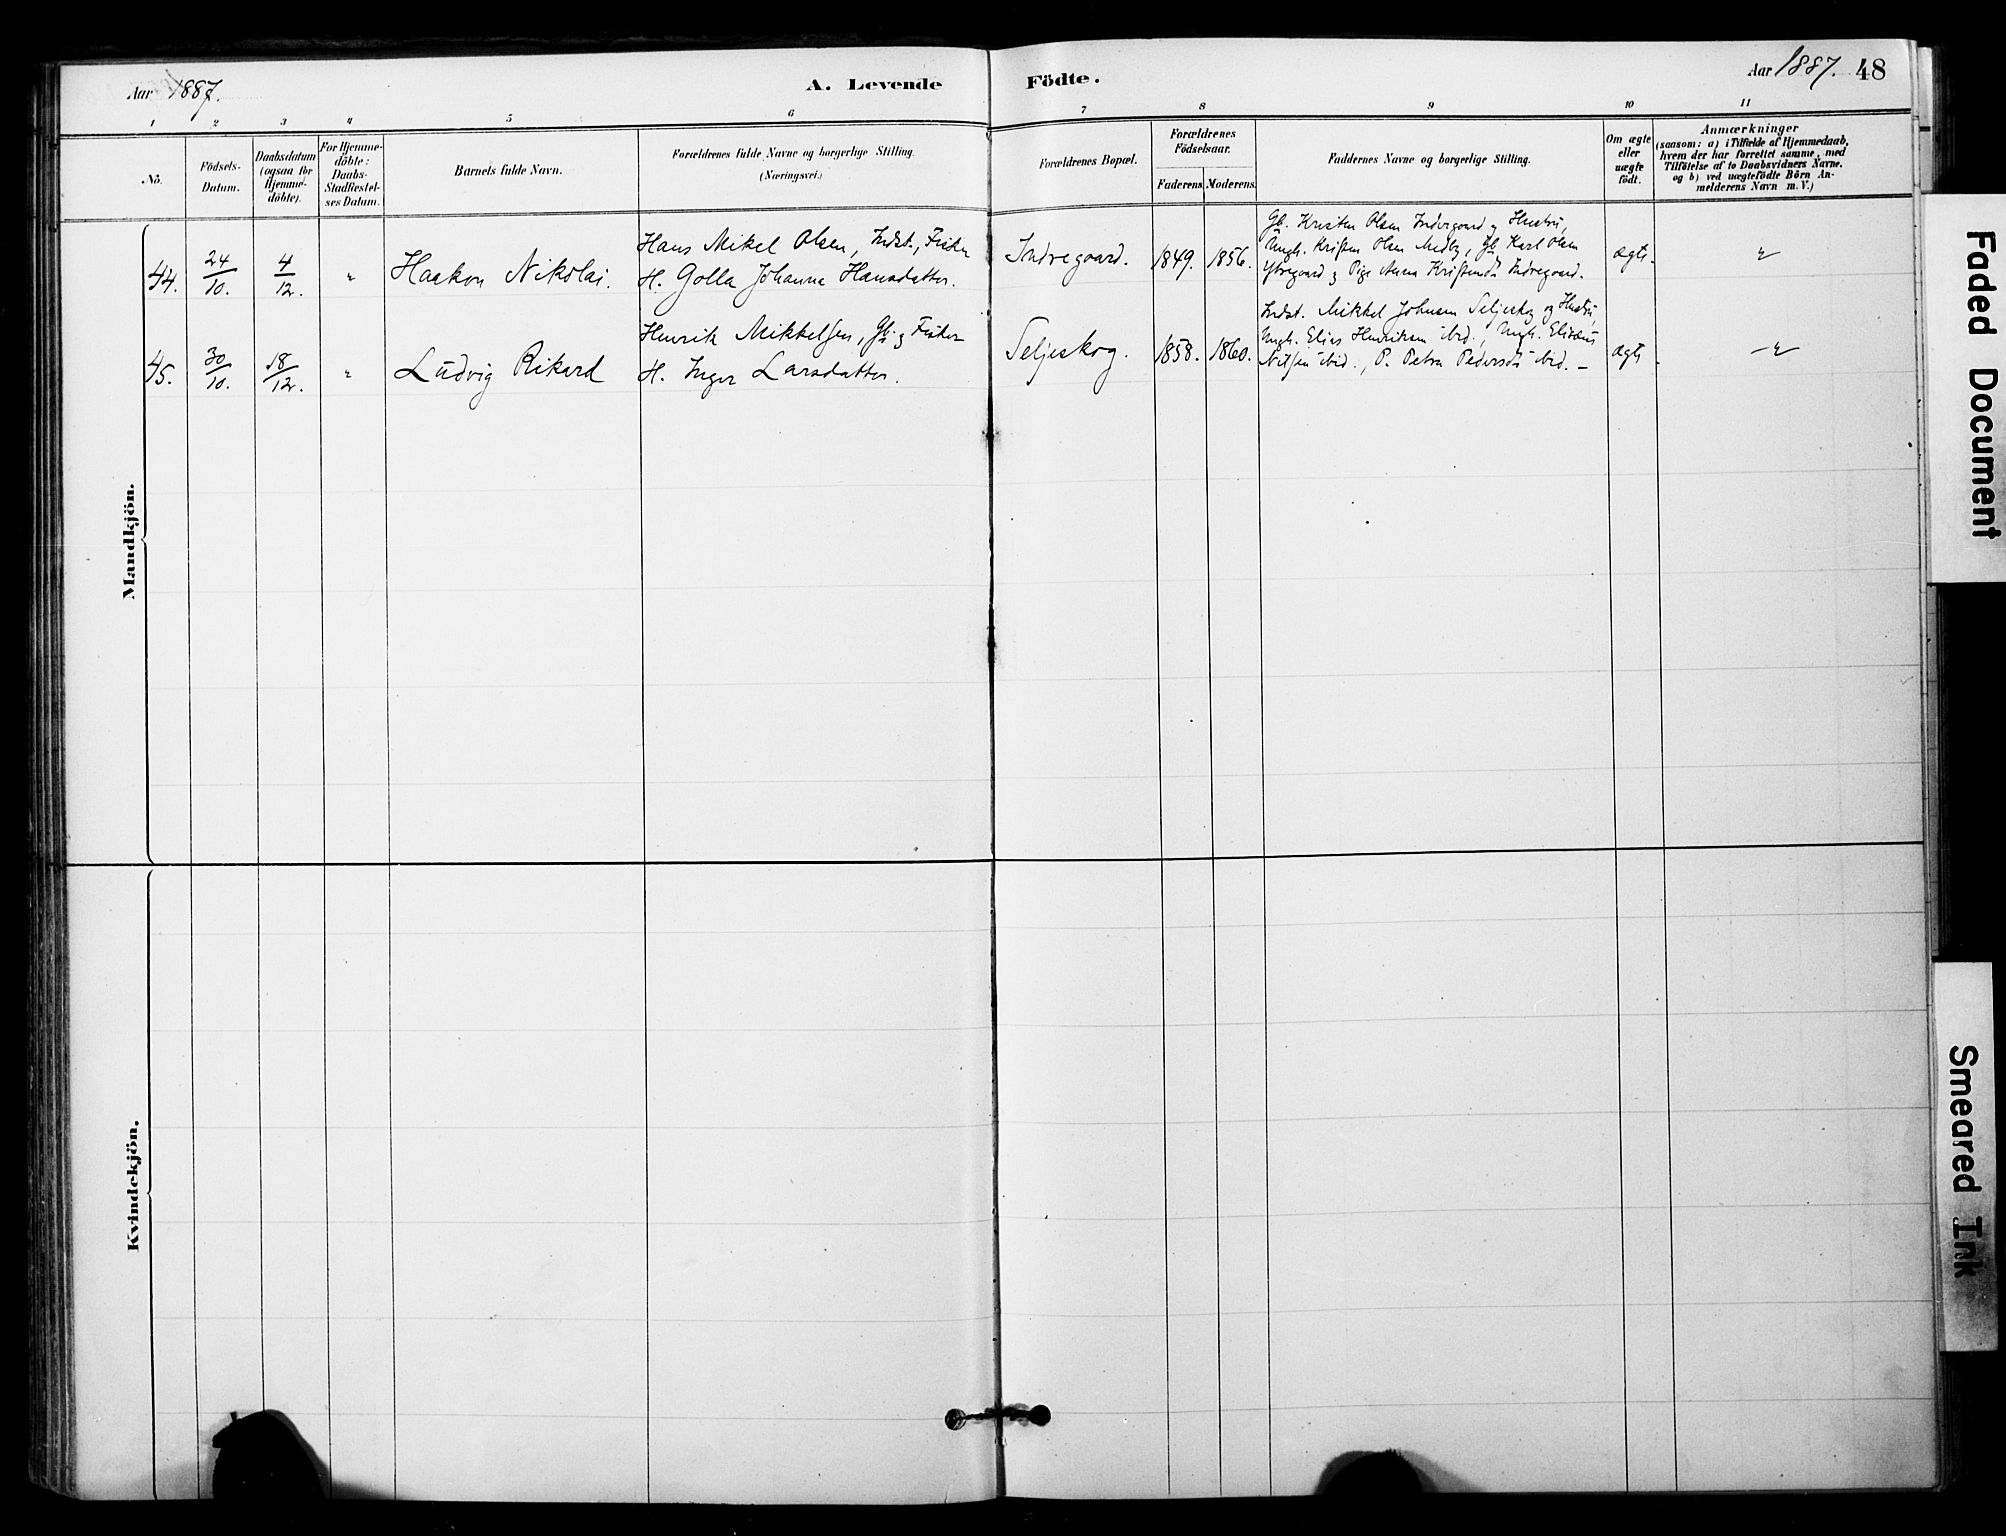 Aar 1887.
A. Levende Födte.
Aar 1887. 48
1 2 3 4 5 6 7 8 9 10 11
No.
Födsels-
Datum.
Daabsdatum
(ogsaa for
Hjemme-
döbte).
For Hjemme-
döbte:
Daabs-
Stadfæstel-
ses Datum.
Barnets fulde Navn.
Forældrenes fulde Navne og borgerlige Stilling.
(Næringsvei.)
Forældrenes Bopæl.
Forældrenes
Födselsaar.
Faderens
Moderens.
Faddernes Navne og borgerlige Stilling.
Om ægte
eller
uægte
födt.
Anmærkninger
(saasom: a) i Tilfælde af Hjemmedaab,
hvem der har forrettet samme, med
Tilföielse af to Daabsvidners Navne.
og b) ved uægtefödte Börn An-
melderens Navn m. V.)
Mandkjön.
44. 24/10. 4/12. " Haakon Nikolai.
Hans Mikel Olsen, Indst., Fisker
H. Golla Johanna Hansdatter.
Indregaard. 1849. 1856.
Gb. Kristen Olsen Indregaard og Hustru,
Ungk. Kristen Olsen Medby, Gb. Karl Olsen
Ytregaard og Pige Anna Kristensdt Indregaard.
ægte. "
45. 30/10. 18/12. " Ludvig Rikard
Henrik Mikkelsen, Gb. og Fisker
H. Inger Larsdatter.
Seljeskog. 1858. 1860.
Indst. Mikkel Johnsen Seljeskog og Hustru,
Ungk. Elias Henriksen ibid., Ungk. Elisæus
Nilsen ibid., P. Petra Pedersdt ibid. –
ægte – " –
Kvindekjön.
Faded Document
Smeared Ink